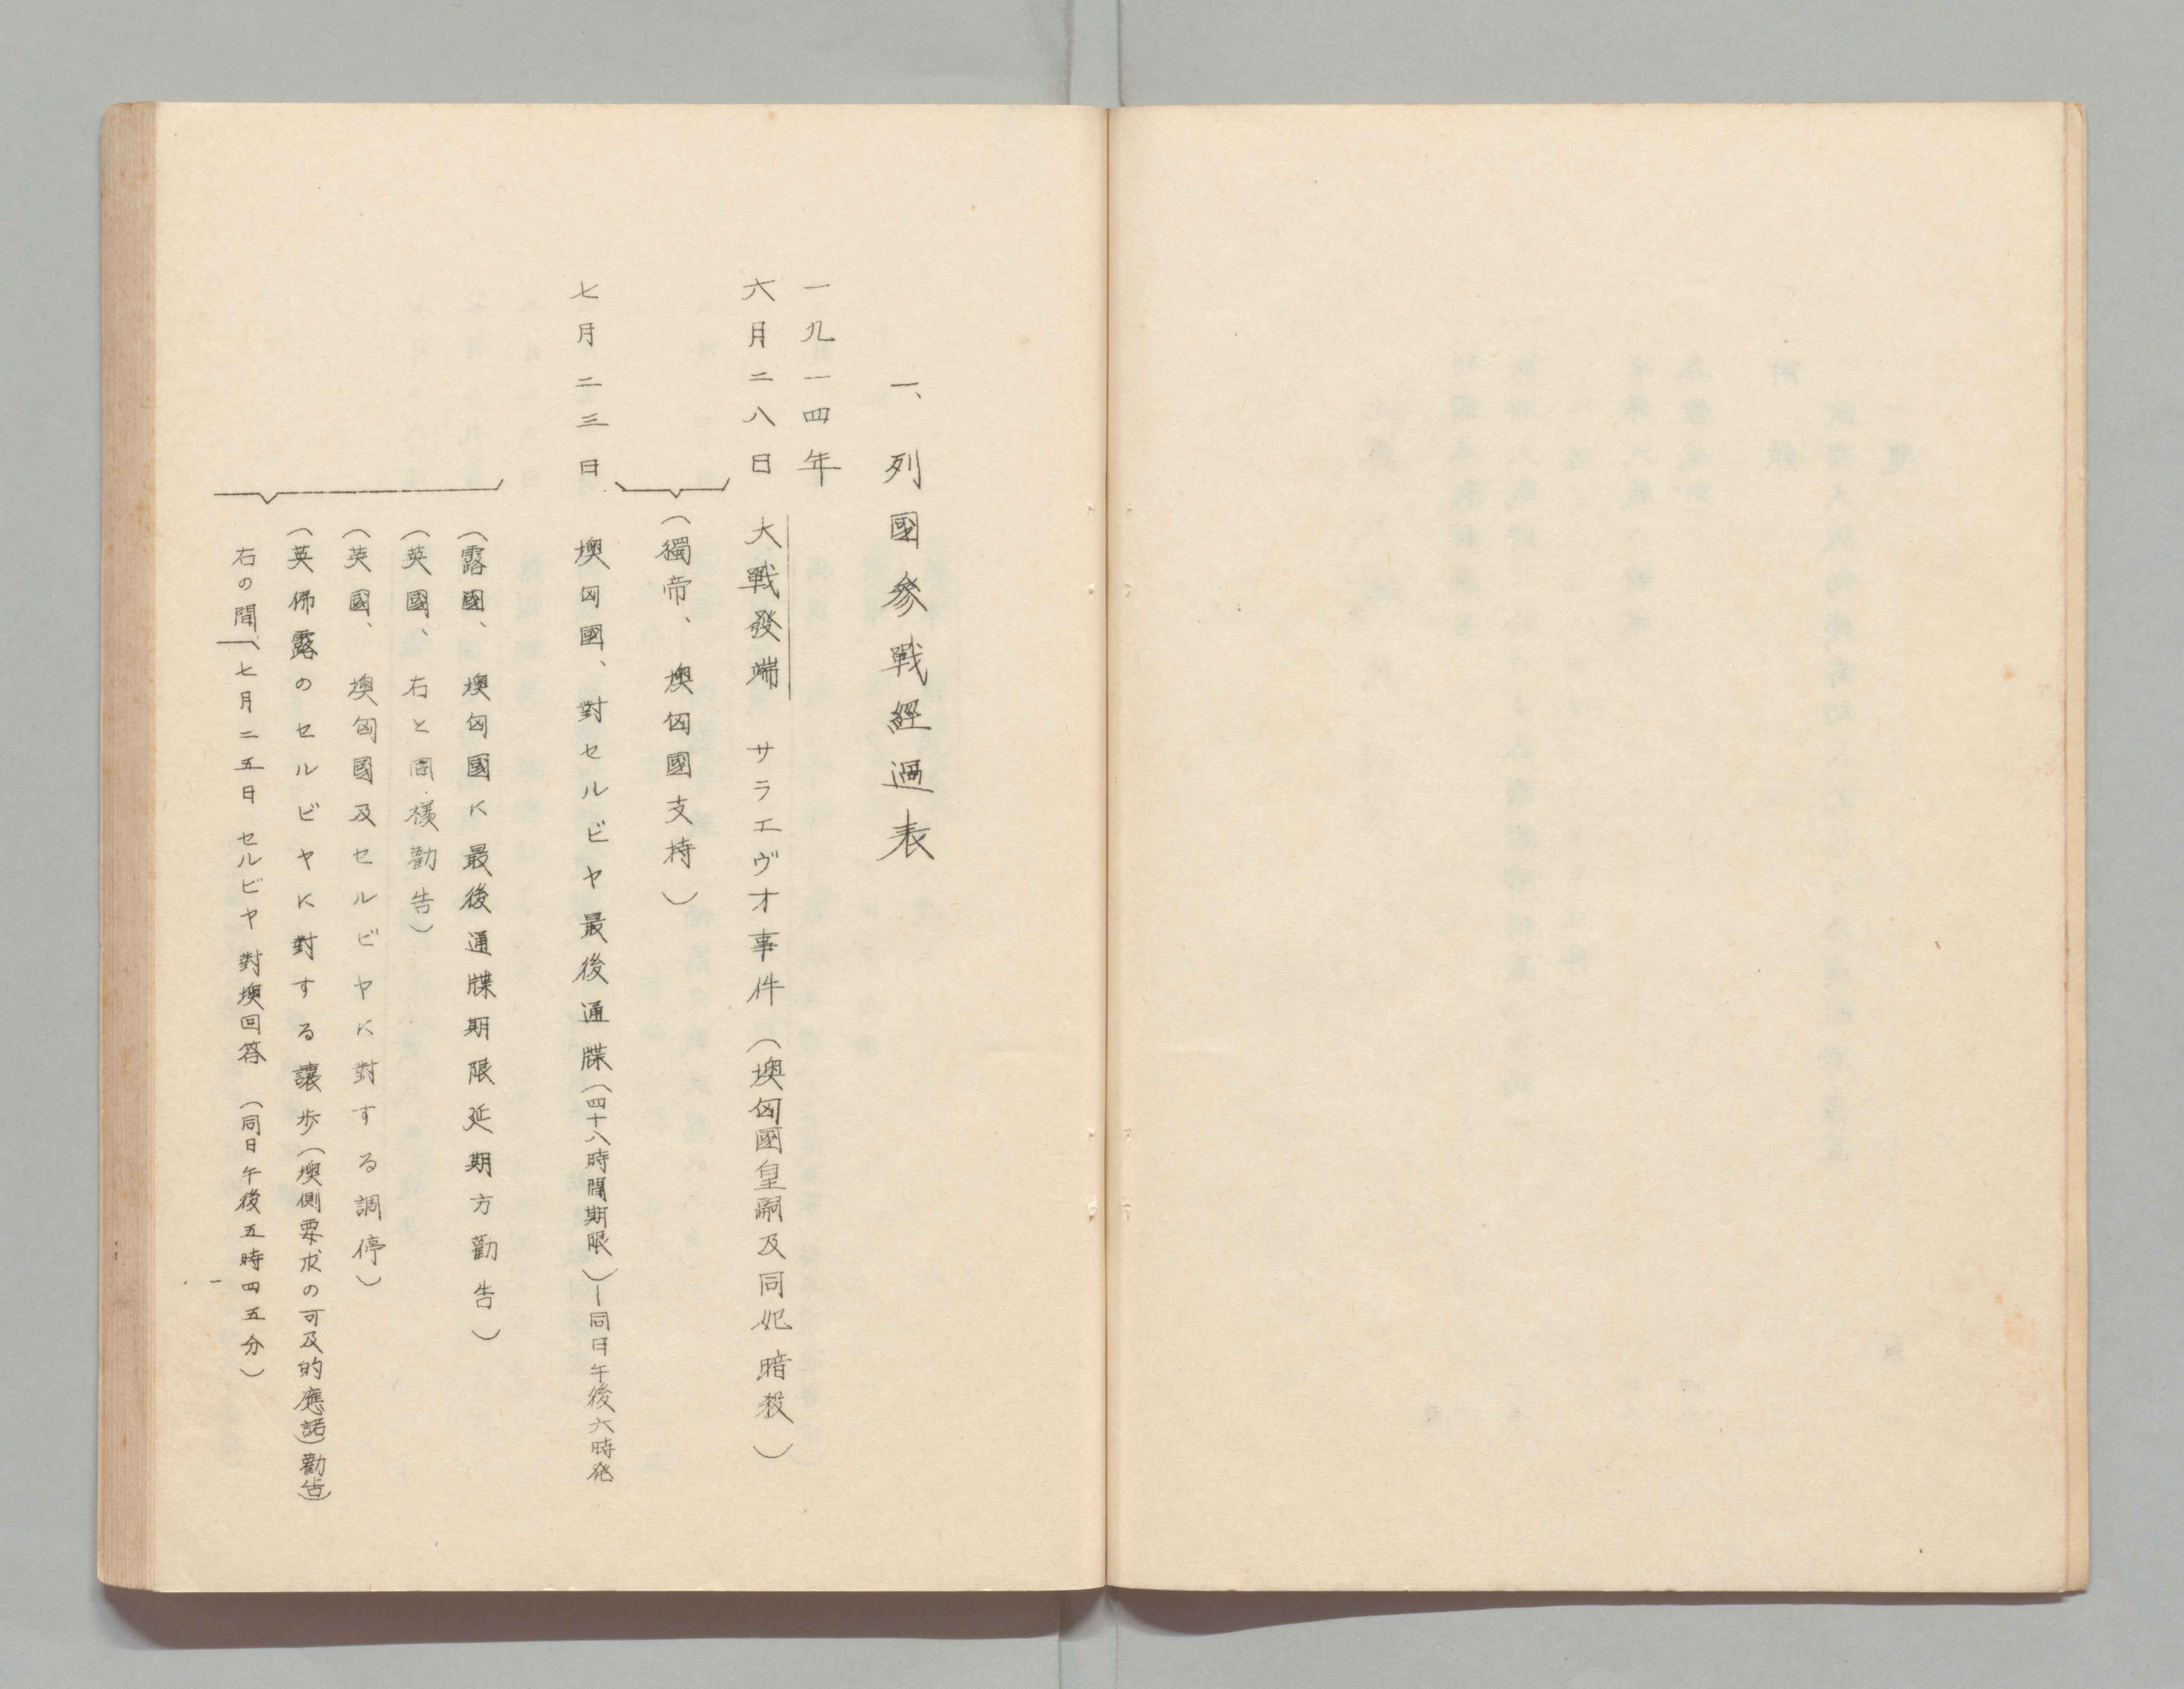 一、列國參戰經過表
一九一四年
六月二八日 大戰發端 サラエヴオ事件（墺匈國皇嗣及同妃暗殺）
（獨帝、墺匈國支持）
七月二三日 墺匈國、對セルビヤ最後通牒（四十八時間期限）―同日午後六時発
（露國、墺匈國に最後通牒期限延期方勸告）
（英國、右と同樣勸告）
（英國、墺匈國及セルビヤに對する調停）
（英佛露のセルビヤに對する讓歩（墺側要求の可及的應諾）勸告）
右の間、七月二五日 セルビヤ對墺回答（同日午後五時四五分）